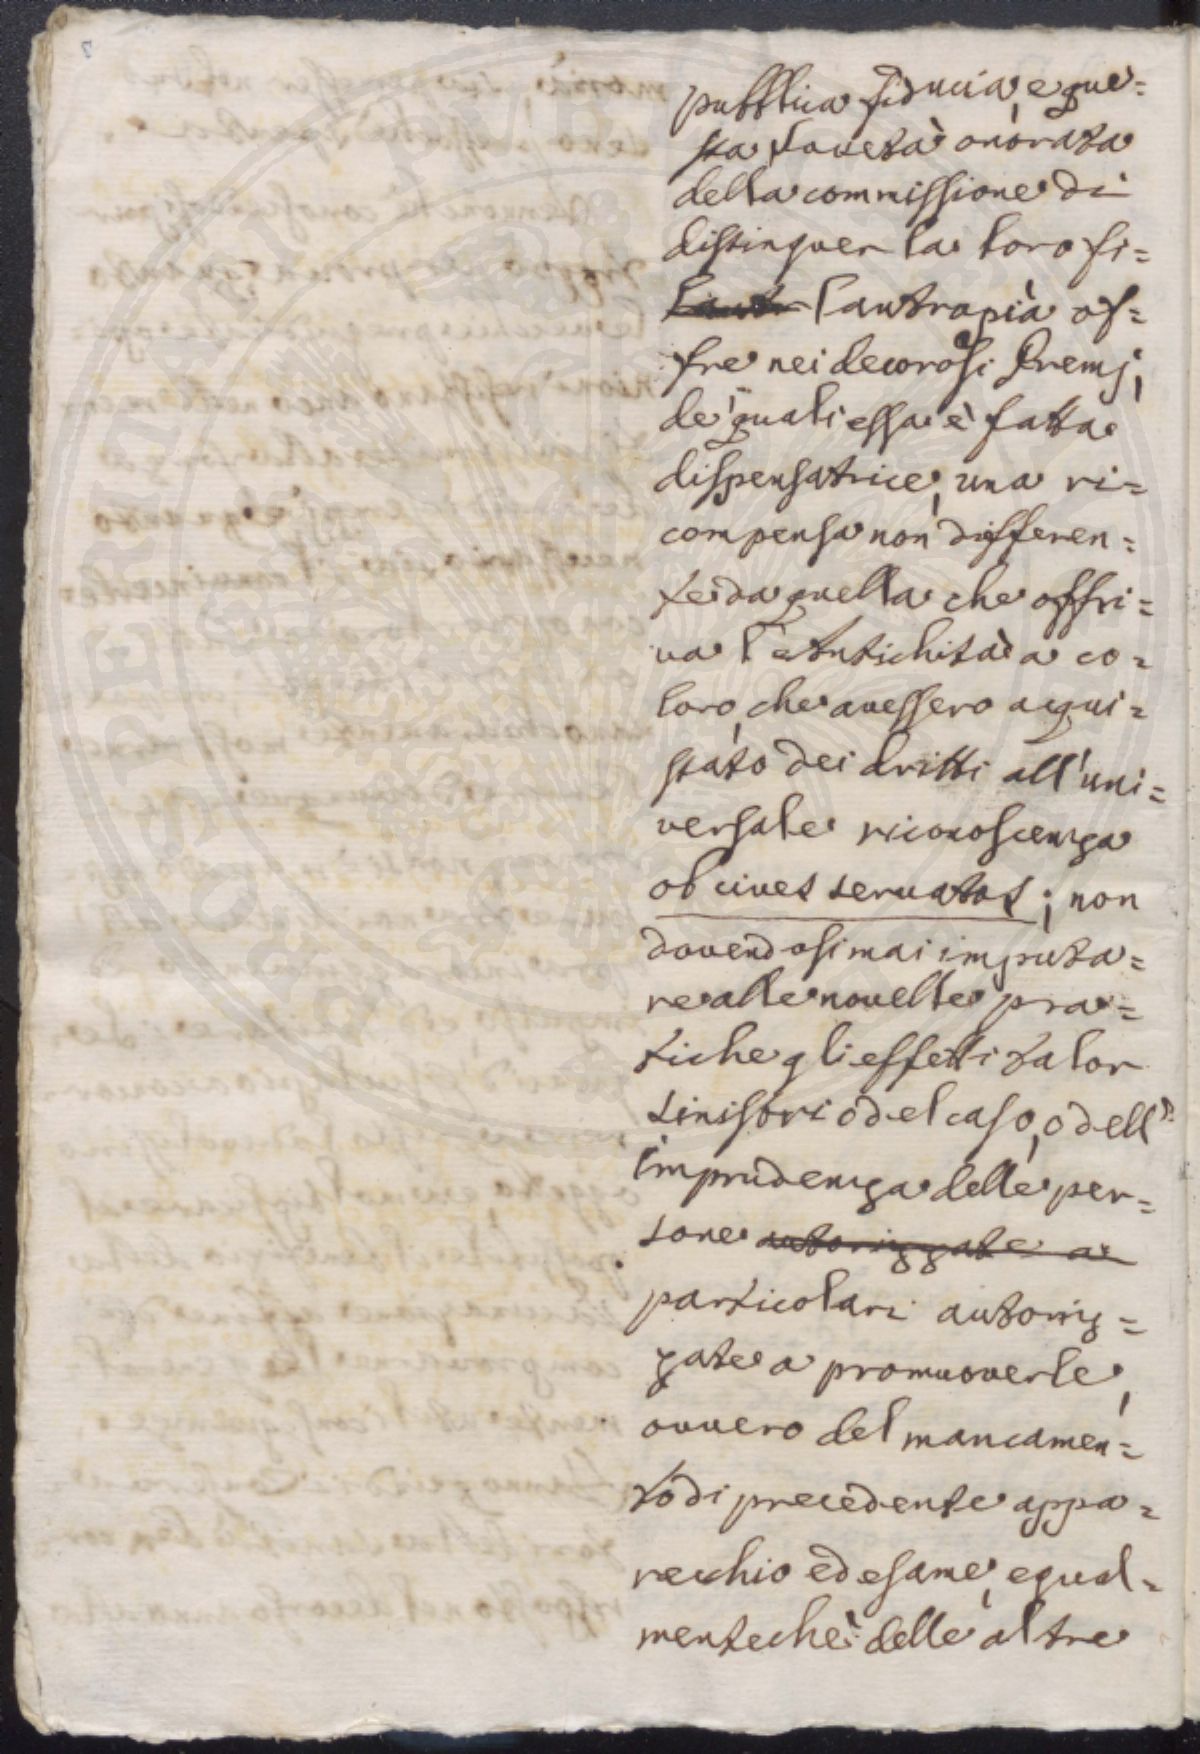 pubblica fiducia, e que=
sta Società onorata
della commissione di
distinguer la loro fi=
lantropia of=
fre nei decorosi Premj,
de' quali essa è fatta
dispensatrice, una ri=
compensa non differen=
te da quella che offri=
va l'Antichità a co=
loro, che avessero acqui=
stato dei dritti all'uni=
versale riconoscenza
ob cives servatos; non
dovendosi mai imputa=
re alle novelle pra=
tiche gli effetti talor
sinistri o del caso, o dell'
imprudenza delle per=
sone autorizzate a
particolari autoriz=
zate a promuoverle,
ovvero del mancamen=
to di precedente appa=
recchio ed esame, egual=
mente che delle altre